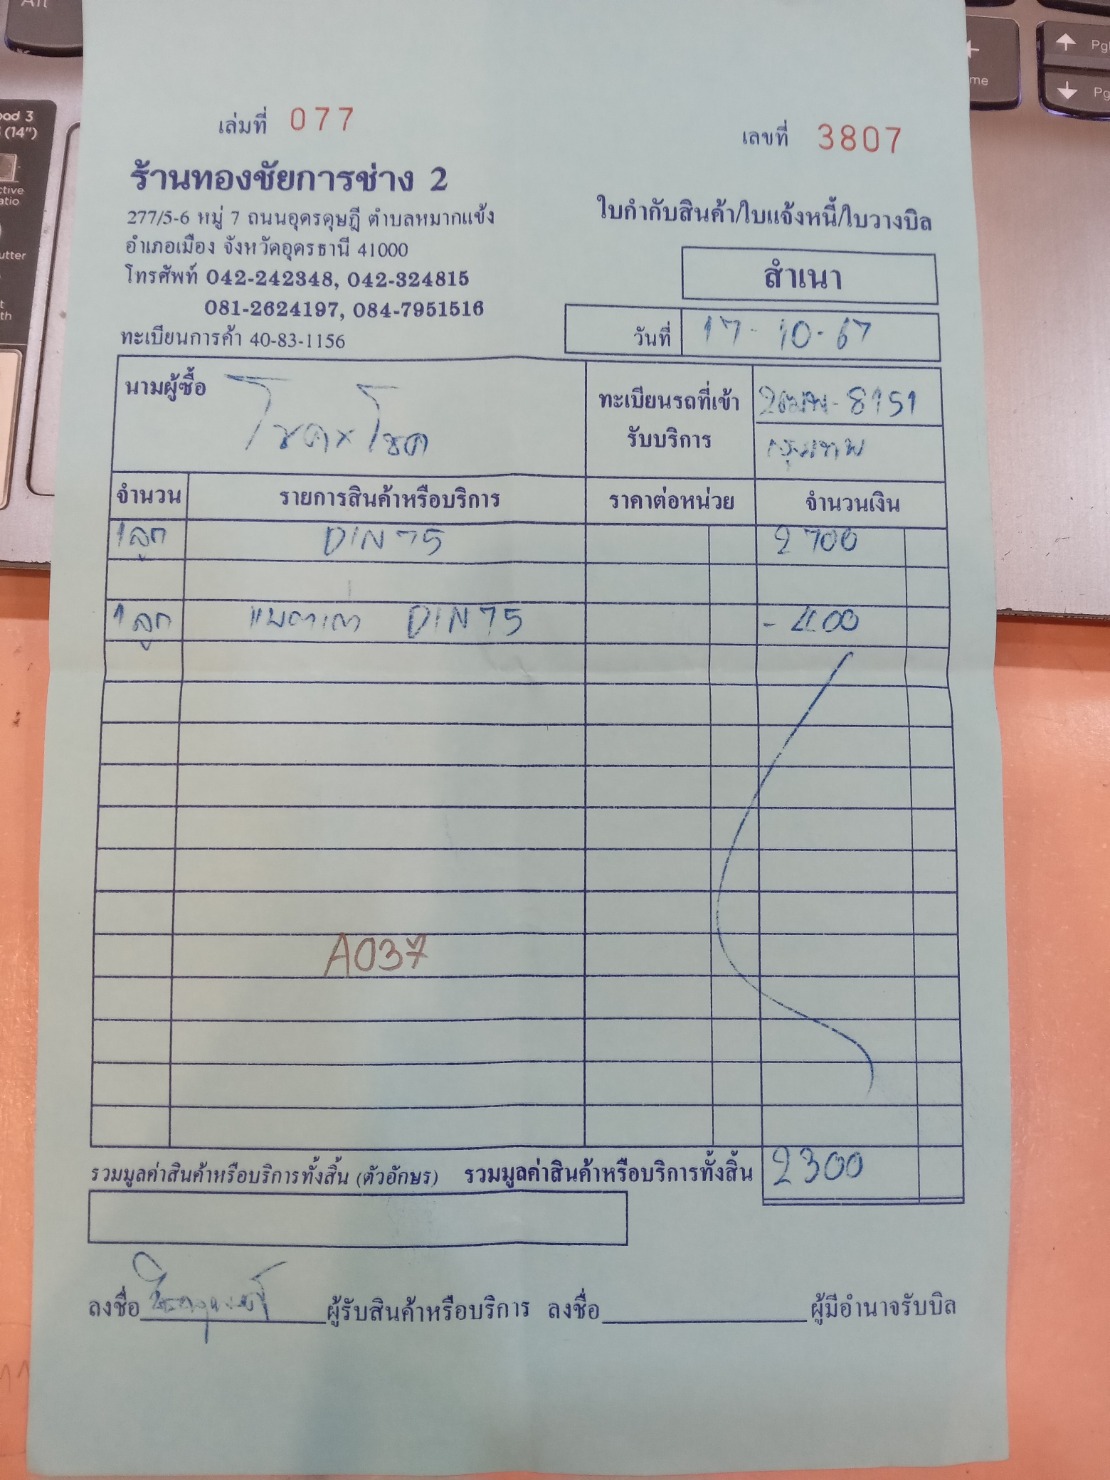 เล่มที่ 077
เลขที่ 3807
ร้านทองชัยการช่าง 2
277/5-6 หมู่ 7 ถนนอุดรดุษฎี ตำบลหมากแข้ง
อำเภอเมือง จังหวัดอุดรธานี 41000
โทรศัพท์ 042-242348, 042-324815
081-2624197, 084-7951516
ทะเบียนการค้า 40-83-1156
ใบกำกับสินค้า/ใบแจ้งหนี้/ใบวางบิล
สำเนา
วันที่ 17-10-67
นามผู้ซื้อ
ทะเบียนรถที่เข้า
รับบริการ
กรุงเทพ
จำนวน รายการสินค้าหรือบริการ ราคาต่อหน่วย จำนวนเงิน
1 ลูก DIN 75 2700
1 ลูก แบตเก่า DIN 75 - 400
A037
รวมมูลค่าสินค้าหรือบริการทั้งสิ้น (ตัวอักษร) รวมมูลค่าสินค้าหรือบริการทั้งสิ้น 2300
ลงชื่อ ผู้รับสินค้าหรือบริการ ลงชื่อ ผู้มีอำนาจรับบิล
Alt
Home
PgUp